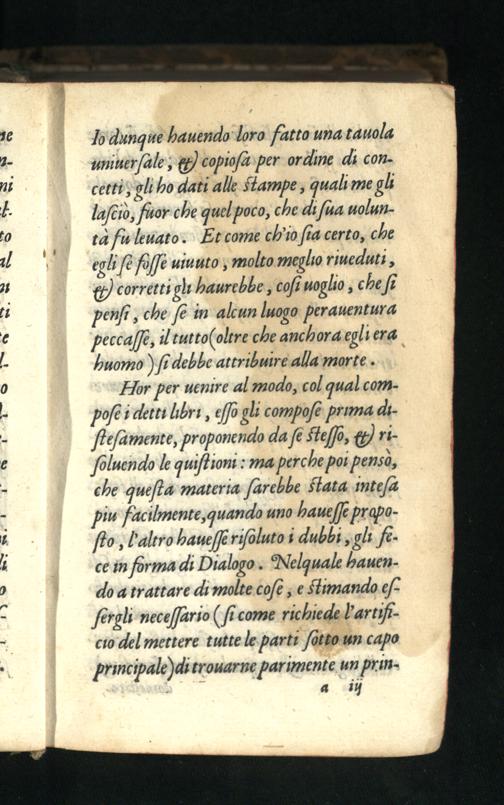 Io dunque hauendo loro fatto una tauola
uniuerſale, & copioſa per ordine di con-
cetti, gli ho dati alle ſtampe, quali me gli
laſciò, fuor che quel poco, che di ſua uolun-
tà fu leuato. Et come ch'io ſia certo, che
egli ſe foſſe uiuuto, molto meglio riueduti,
& corretti gli haurebbe, coſi uoglio, che ſi
penſi, che ſe in alcun luogo perauentura
peccaſſe, il tutto (oltre che anchora egli era
huomo) ſi debbe attribuire alla morte.
Hor per uenire al modo, col qual com-
poſe i detti libri, eſſo gli compoſe prima di-
ſteſamente, proponendo da ſe ſteſſo, & ri-
ſoluendo le quiſtioni: ma perche poi pensò,
che queſta materia ſarebbe ſtata inteſa
piu facilmente, quando uno haueſſe propo-
ſto, l'altro haueſſe riſoluto i dubbi, gli fe-
ce in forma di Dialogo. Nelquale hauen-
do a trattare di molte coſe, e ſtimando eſ-
ſergli neceſſario (ſi come richiede l'artifi-
cio del mettere tutte le parti ſotto un capo
principale) di trouarne parimente un prin-
a iij